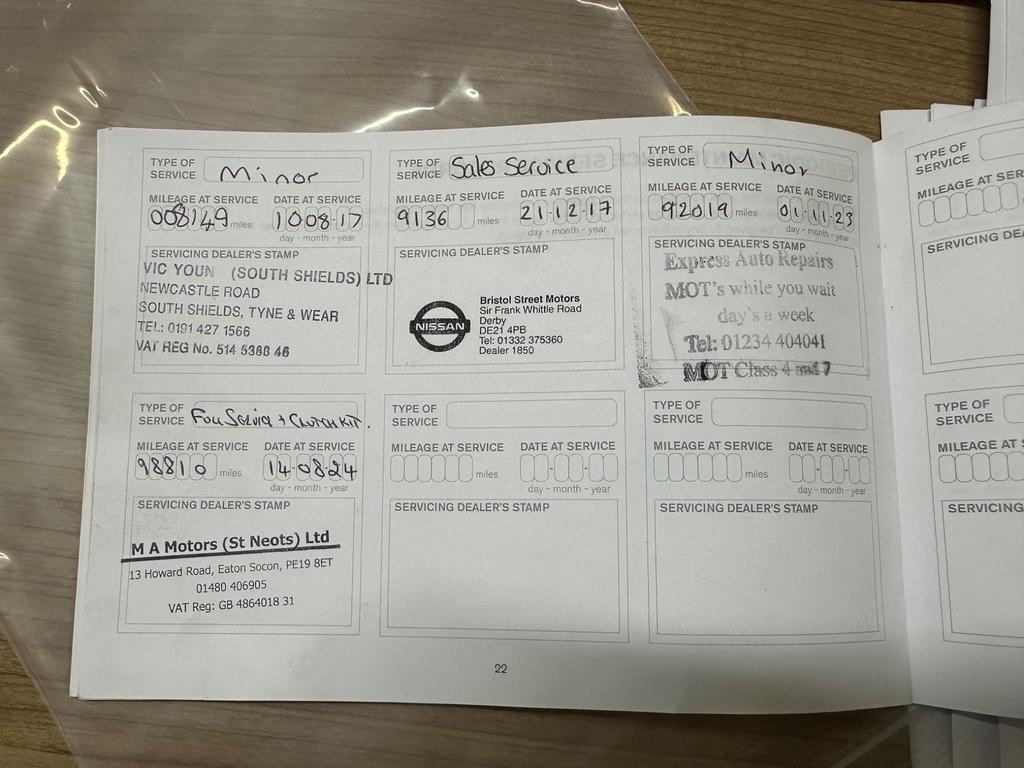 TYPE OF SERVICE Minor
MILEAGE AT SERVICE DATE AT SERVICE
008149 miles 10-08-17
day - month - year
SERVICING DEALER'S STAMP
VIC YOUN (SOUTH SHIELDS) LTD
NEWCASTLE ROAD
SOUTH SHIELDS, TYNE & WEAR
TEL: 0191 427 1566
VAT REG No. 514 5380 46
TYPE OF SERVICE Sales Service
MILEAGE AT SERVICE DATE AT SERVICE
9136 miles 21-12-17
day - month - year
SERVICING DEALER'S STAMP
NISSAN
Bristol Street Motors
Sir Frank Whittle Road
Derby
DE21 4PB
Tel: 01332 375360
Dealer 1850
TYPE OF SERVICE Minor
MILEAGE AT SERVICE DATE AT SERVICE
92019 miles 01-11-23
day - month - year
SERVICING DEALER'S STAMP
Express Auto Repairs
MOT's while you wait
day's a week
Tel: 01234 404041
MOT Class 4 and 7
TYPE OF SERVICE Full Service + CLUTCH KIT.
MILEAGE AT SERVICE DATE AT SERVICE
98810 miles 14-08-24
day - month - year
SERVICING DEALER'S STAMP
M A Motors (St Neots) Ltd
13 Howard Road, Eaton Socon, PE19 8ET
01480 406905
VAT Reg: GB 4864018 31
TYPE OF SERVICE
MILEAGE AT SERVICE DATE AT SERVICE
miles
day - month - year
SERVICING DEALER'S STAMP
TYPE OF SERVICE
MILEAGE AT SERVICE DATE AT SERVICE
miles
day - month - year
SERVICING DEALER'S STAMP
22
TYPE OF SERVICE
MILEAGE AT SERVICE
SERVICING DEA
TYPE OF SERVICE
MILEAGE AT S
SERVICING